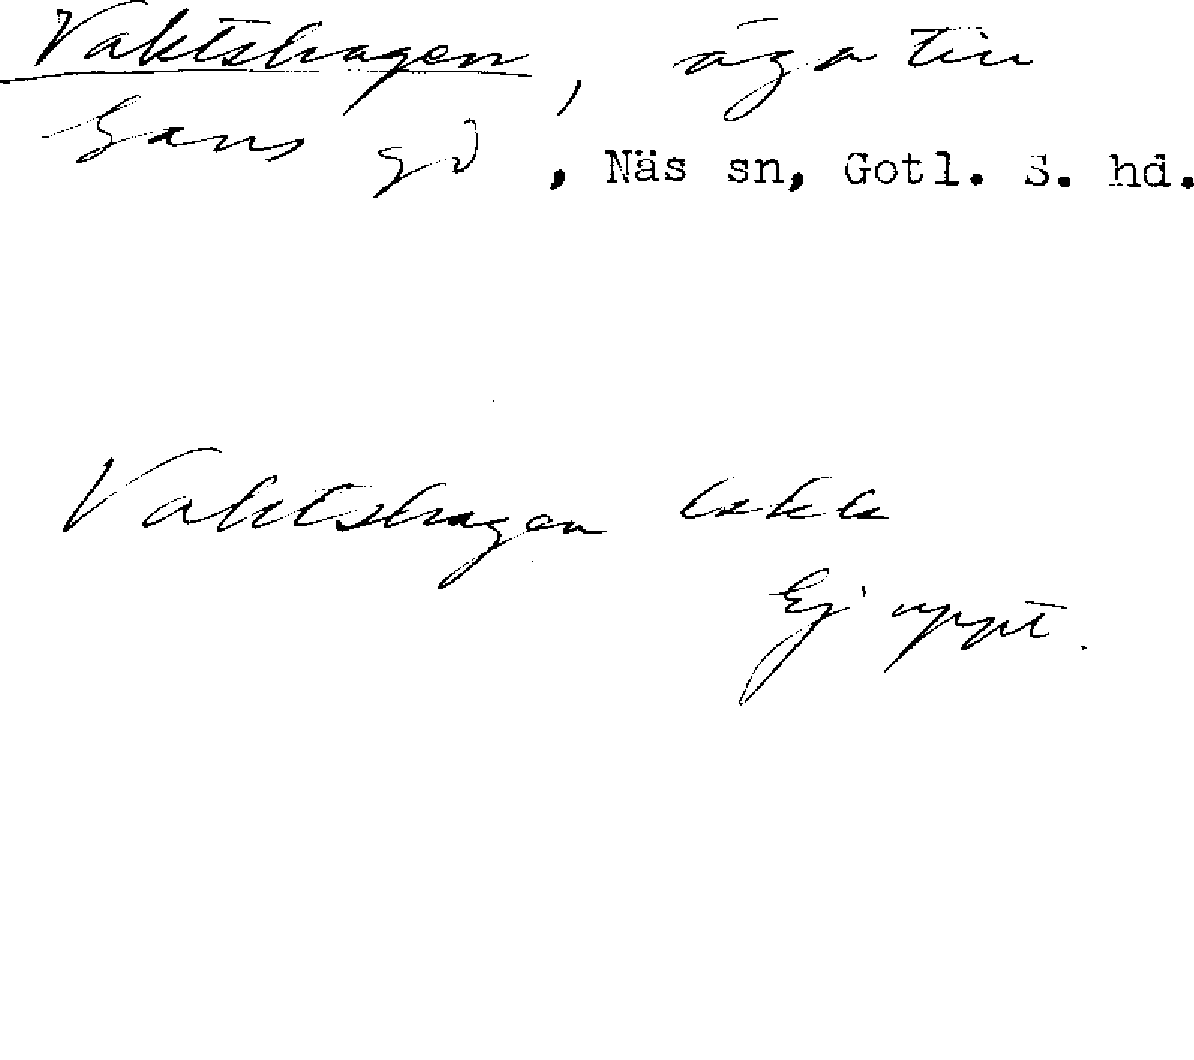 Vaktshagen, äga till
Gans gd, Näs sn, Gotl. S. hd.
Vaktshagen
Ej uppt.